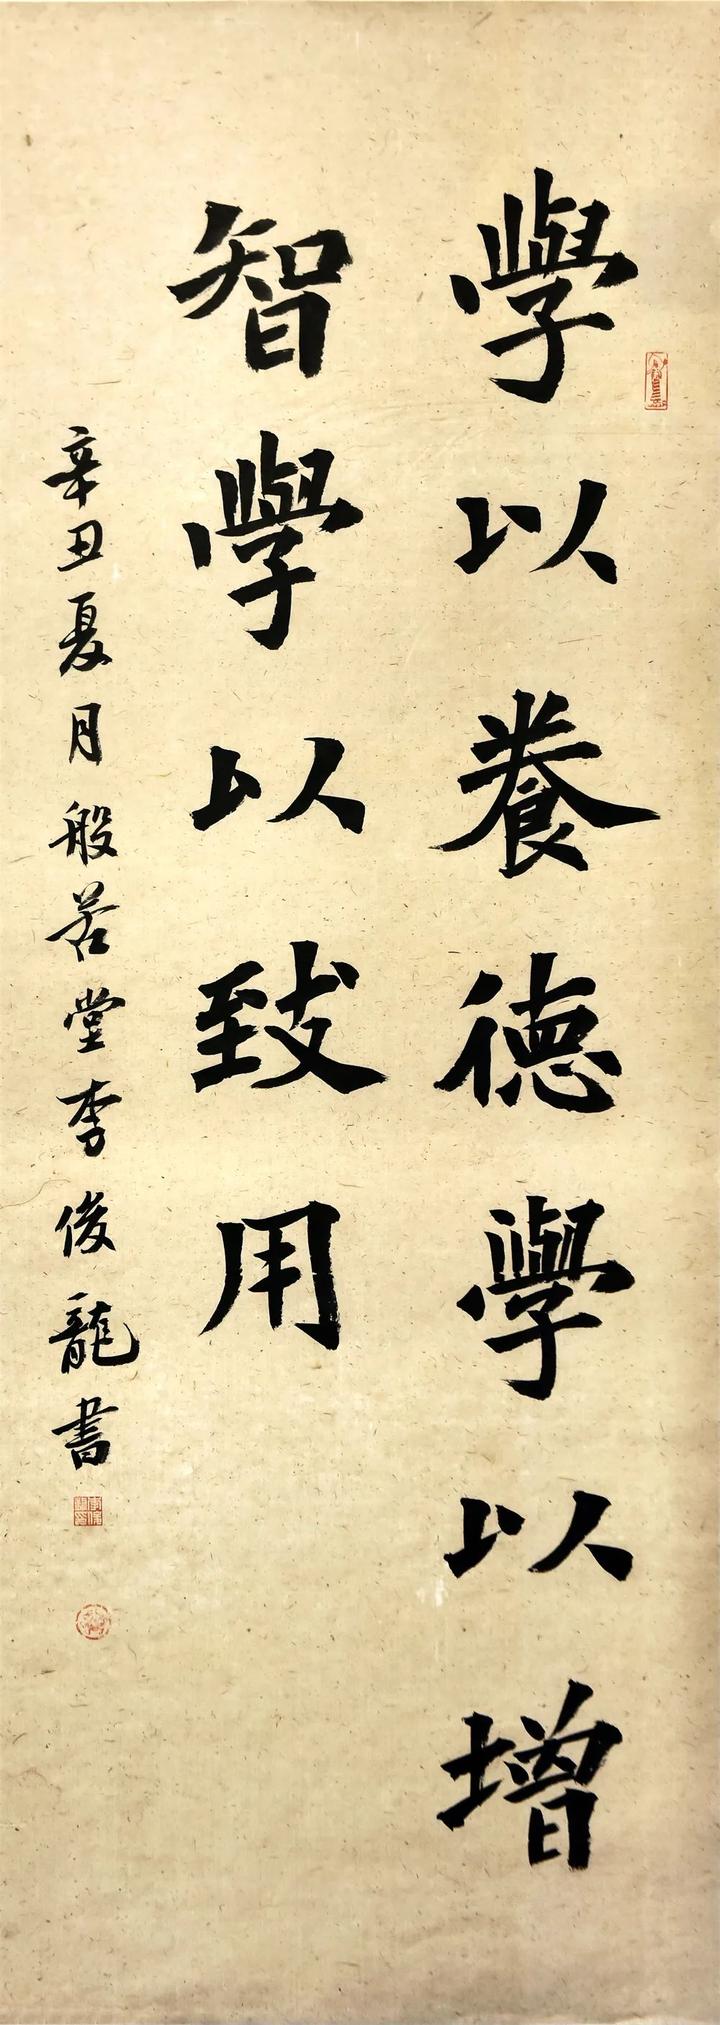 學以養德學以增
智學以致用
辛丑夏月般若堂李俊龍書